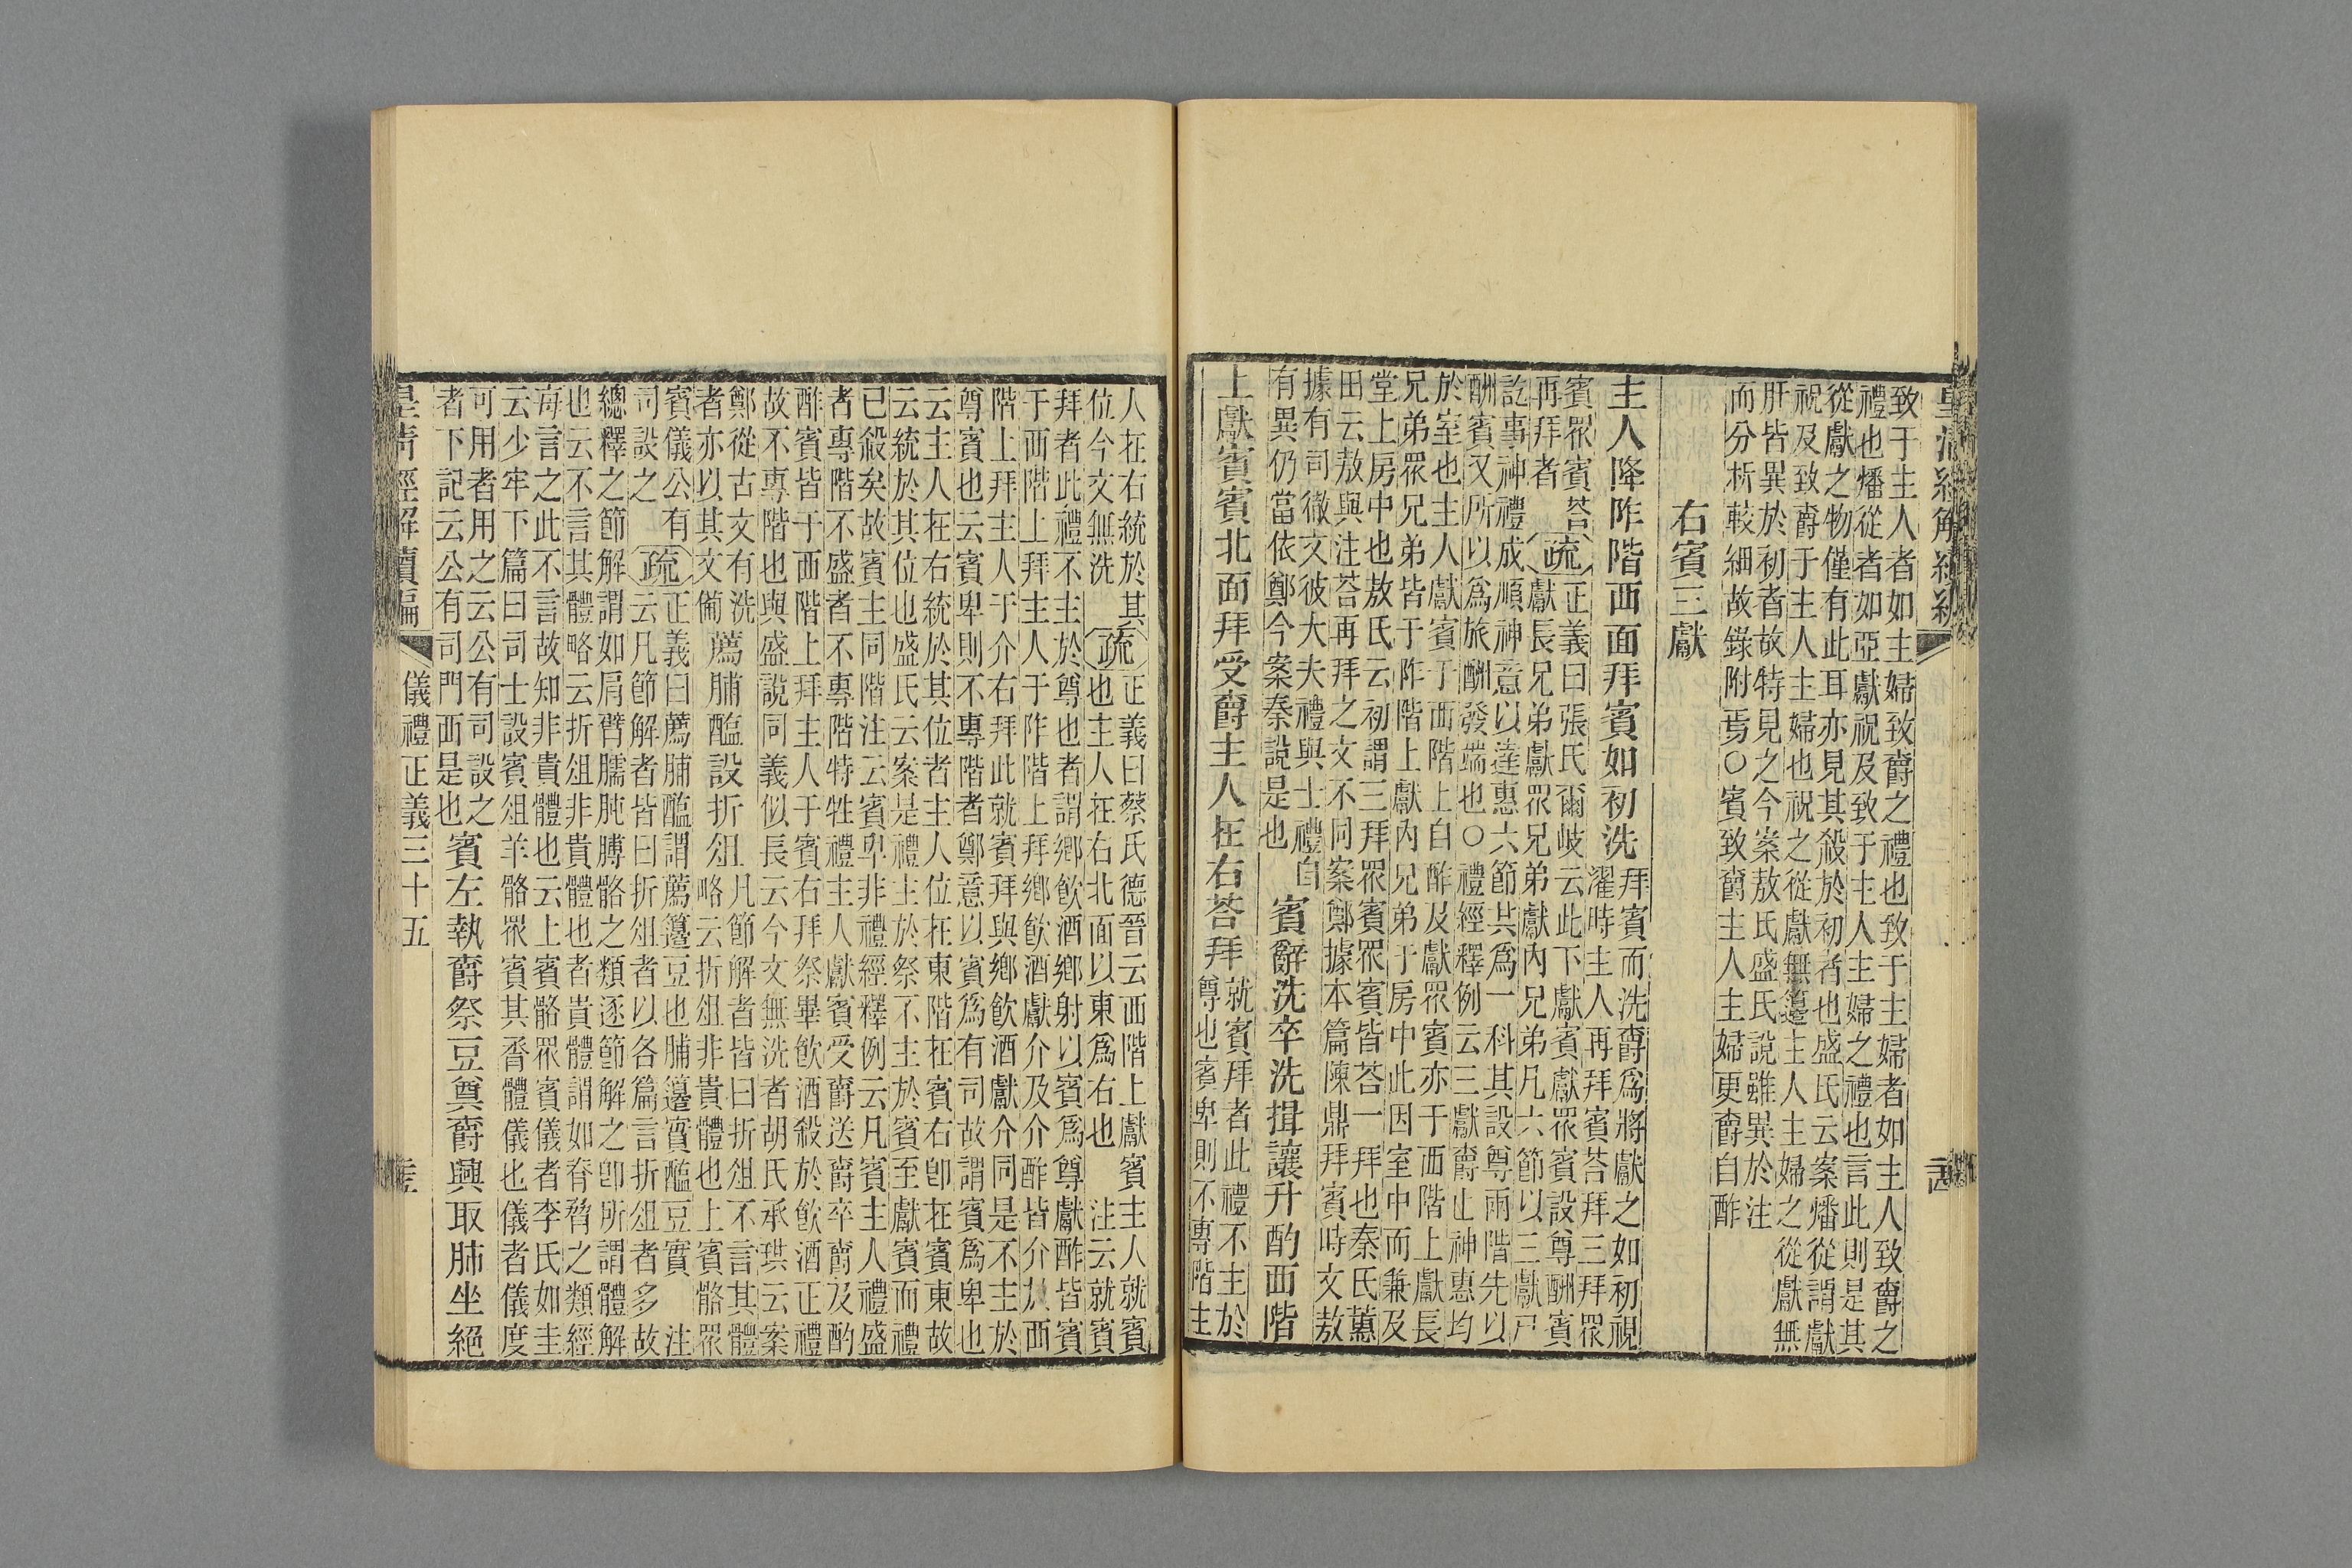 皇清經解續編
致于主人者如主婦致爵之禮也致于主婦者如主人致爵之
禮也燔從者如亞獻祝及致于主人主婦之禮也言此則是其
從獻之物僅有此耳亦見其殺於初者也盛氏云案燔從謂獻
祝及致爵于主人主婦也祝之從獻無籩主人主婦之從獻無
肝皆異於初者故特見之今案敖氏盛氏說雖異於注
而分析較細故錄附焉○賓致爵主人主婦更爵自酢
右賓三獻
主人降阼階西面拜賓如初洗
拜賓而洗爵為將獻之如初視
濯時主人再拜賓荅拜三拜眾
賓眾賓荅
再拜者
疏
正義曰張氏爾岐云此下獻賓獻眾賓設尊酬賓
獻長兄弟獻眾兄弟獻內兄弟凡六節以三獻尸
訖事神禮成順神意以達惠六節共為一科其設尊兩階先以
酬賓又所以為旅酬發端也○禮經釋例云三獻爵止神惠均
於室也主人獻賓于西階上自酢及獻眾賓亦于西階上獻長
兄弟眾兄弟皆于阼階上獻內兄弟于房中此因室中而兼及
堂上房中也敖氏云初謂三拜眾賓眾賓皆荅一拜也秦氏蕙
田云敖與注荅再拜之文不同案鄭據本篇陳鼎拜賓時文敖
據有司徹文彼大夫禮與士禮自
有異仍當依鄭今案秦說是也
賓辭洗卒洗揖讓升酌西階
上獻賓賓北面拜受爵主人在右荅拜
就賓拜者此禮不主於
尊也賓卑則不專階主
人在右統於其
位今文無洗
疏
正義曰蔡氏德晉云西階上獻賓主人就賓
也主人在右北面以東為右也　注云就賓
拜者此禮不主於尊也者謂鄉飲酒鄉射以賓為尊獻酢皆賓
于西階上拜主人于阼階上拜鄉飲酒獻介及介酢皆介於西
階上拜主人于介右拜此就賓拜與鄉飲酒獻介同是不主於
尊賓也云賓卑則不專階者鄭意以賓為有司故謂賓為卑也
云主人在右統於其位者主人位在東階在賓右卽在賓東故
云統於其位也盛氏云案是禮主於祭不主於賓至獻賓而禮
已殺矣故賓主同階注云賓卑非禮經釋例云凡賓主人禮盛
者專階不盛者不專階特牲禮主人獻賓受爵送爵卒爵及酌
酢賓皆于西階上拜主人于賓右拜祭畢飲酒殺於飲酒正禮
故不專階也與盛說同義似長云今文無洗者胡氏承珙云案
鄭從古文有洗
者亦以其文備
薦脯醢設折俎
凡節解者皆曰折俎不言其體
略云折俎非貴體也上賓骼眾
賓儀公有
司設之
疏
正義曰薦脯醢謂薦籩豆也脯籩實醢豆實　注
云凡節解者皆曰折俎者以各篇言折俎者多故
總釋之節解謂如肩臂臑肫膊骼之類逐節解之卽所謂體解
也云不言其體略云折俎非貴體也者貴體謂如脊脅之類經
每言之此不言故知非貴體也云上賓骼眾賓儀者李氏如圭
云少牢下篇曰司士設賓俎羊骼眾賓其脀體儀也儀者儀度
可用者用之云公有司設之
者下記云公有司門西是也
賓左執爵祭豆奠爵興取肺坐絕
皇清經解續編
儀禮正義三十五